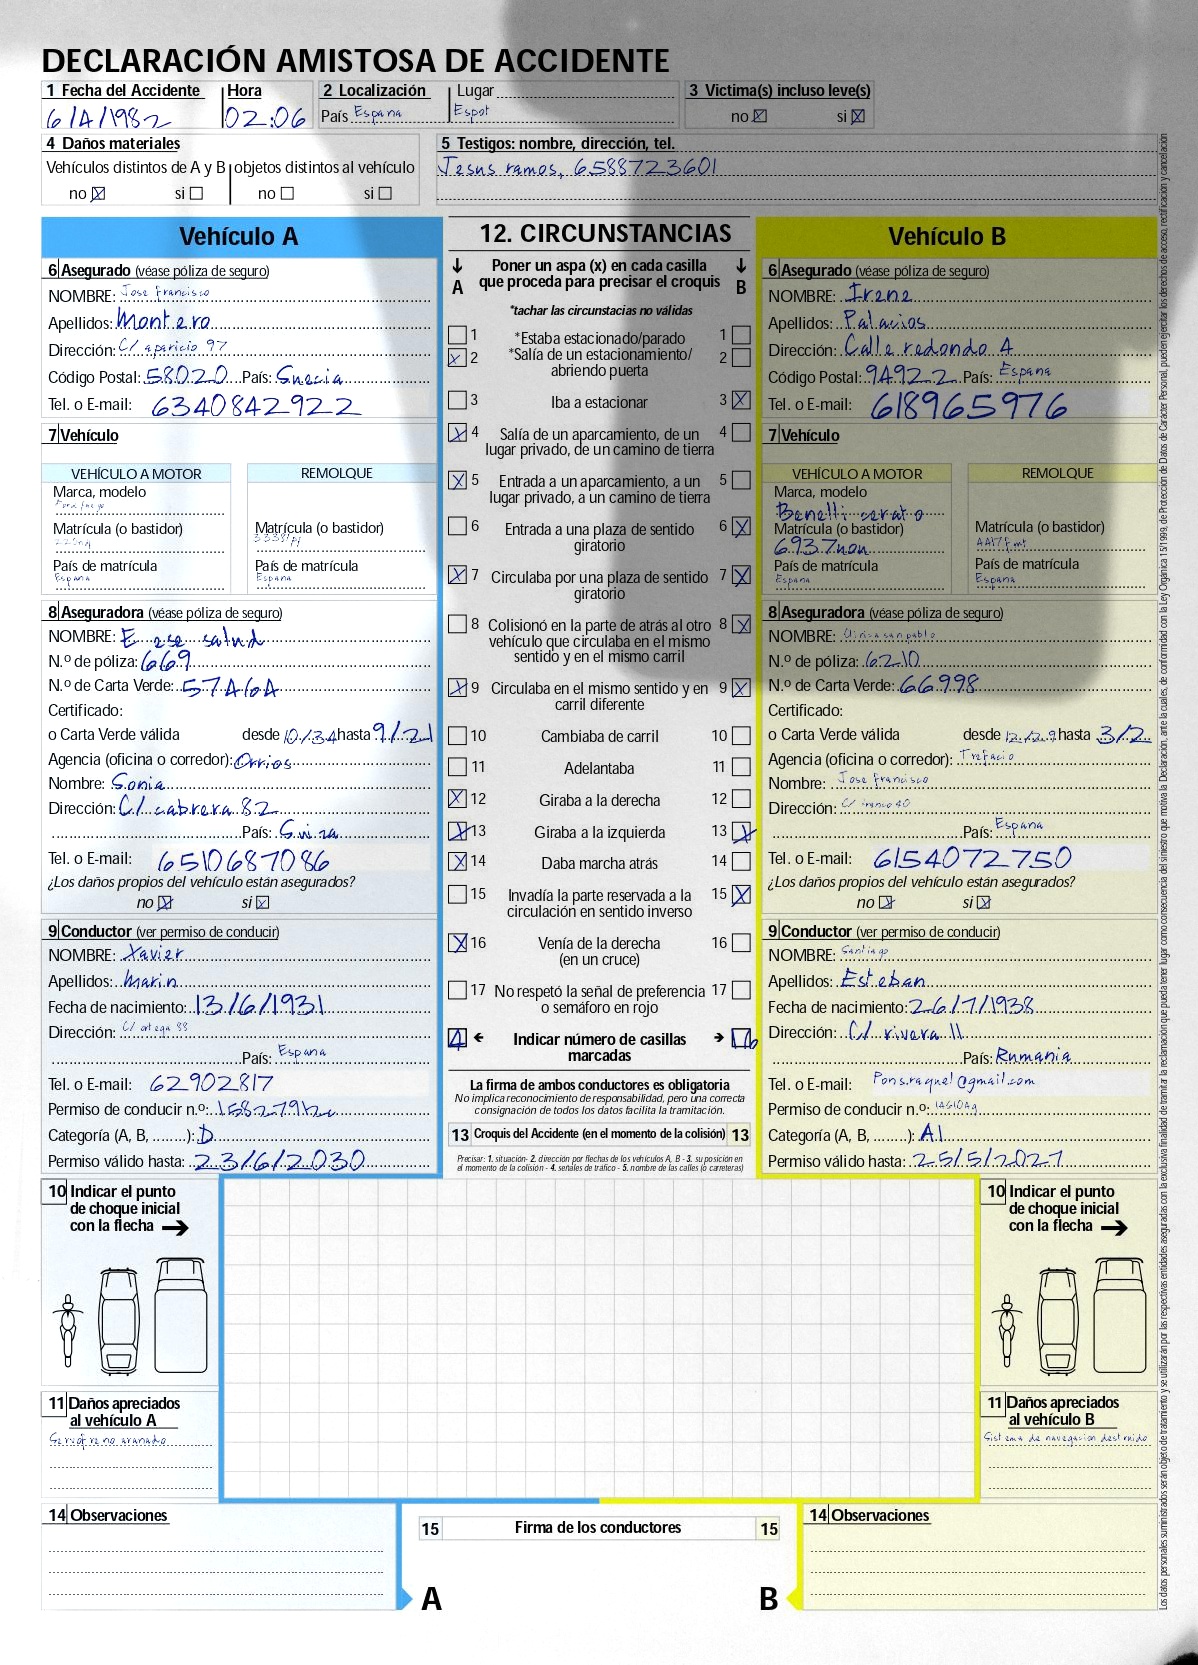 DECLARACIÓN AMISTOSA DE ACCIDENTE
1 Fecha del Accidente Hora 2 Localización Lugar 3 Victima(s) incluso leve(s)
6/4/1982 02:06 País España Espot no si
4 Daños materiales
Vehículos distintos de A y B objetos distintos al vehículo
no si no si
5 Testigos: nombre, dirección, tel.
Jesus ramos, 6588723601
Vehículo A
6 Asegurado (véase póliza de seguro)
NOMBRE: Jose Francisco
Apellidos: Montero
Dirección: C/ aparicio 97
Código Postal: 58020 País: Suecia
Tel. o E-mail: 6340842922
7 Vehículo
VEHÍCULO A MOTOR REMOLQUE
Marca, modelo
Matrícula (o bastidor) Matrícula (o bastidor)
País de matrícula País de matrícula
España España
8 Aseguradora (véase póliza de seguro)
NOMBRE: E ese salud
N.º de póliza: 669
N.º de Carta Verde: 57464
Certificado:
o Carta Verde válida desde 10/34 hasta 9/21
Agencia (oficina o corredor): Orrios
Nombre: Sonia
Dirección: C/ cabrera 82
País: Suiza
Tel. o E-mail: 6510687086
¿Los daños propios del vehículo están asegurados?
no si
9 Conductor (ver permiso de conducir)
NOMBRE: Xavier
Apellidos: Marin
Fecha de nacimiento: 13/6/1931
Dirección: C/ ortega 88
País: España
Tel. o E-mail: 62902817
Permiso de conducir n.º:
Categoría (A, B, ........): D
Permiso válido hasta: 23/6/2030
12. CIRCUNSTANCIAS
Poner un aspa (x) en cada casilla
A que proceda para precisar el croquis B
*tachar las circunstacias no válidas
1 *Estaba estacionado/parado 1
2 *Salía de un estacionamiento/ 2
abriendo puerta
3 Iba a estacionar 3
4 Salía de un aparcamiento, de un 4
lugar privado, de un camino de tierra
5 Entrada a un aparcamiento, a un 5
lugar privado, a un camino de tierra
6 Entrada a una plaza de sentido 6
giratorio
7 Circulaba por una plaza de sentido 7
giratorio
8 Colisionó en la parte de atrás al otro 8
vehículo que circulaba en el mismo
sentido y en el mismo carril
9 Circulaba en el mismo sentido y en 9
carril diferente
10 Cambiaba de carril 10
11 Adelantaba 11
12 Giraba a la derecha 12
13 Giraba a la izquierda 13
14 Daba marcha atrás 14
15 Invadía la parte reservada a la 15
circulación en sentido inverso
16 Venía de la derecha 16
(en un cruce)
17 No respetó la señal de preferencia 17
o semáforo en rojo
4 Indicar número de casillas 16
marcadas
La firma de ambos conductores es obligatoria
No implica reconocimiento de responsabilidad, pero una correcta
consignación de todos los datos facilita la tramitación.
13 Croquis del Accidente (en el momento de la colisión) 13
Precisar: 1. situación- 2. dirección por flechas de los vehículos A, B - 3. su posición en
el momento de la colisión - 4. señales de tráfico - 5. nombre de las calles (o carreteras)
Vehículo B
6 Asegurado (véase póliza de seguro)
NOMBRE: Irene
Apellidos: Palacios
Dirección: Calle redondo 4
Código Postal: 94922 País: España
Tel. o E-mail: 618965976
7 Vehículo
VEHÍCULO A MOTOR REMOLQUE
Marca, modelo
Benelli cerato
Matrícula (o bastidor) Matrícula (o bastidor)
6937non
País de matrícula País de matrícula
España España
8 Aseguradora (véase póliza de seguro)
NOMBRE: Clinica san pablo
N.º de póliza: 6210
N.º de Carta Verde: 66998
Certificado:
o Carta Verde válida desde 12/29 hasta 3/2
Agencia (oficina o corredor): Trefacio
Nombre: Jose Francisco
Dirección: C/ franco 40
País: España
Tel. o E-mail: 6154072750
¿Los daños propios del vehículo están asegurados?
no si
9 Conductor (ver permiso de conducir)
NOMBRE: Santiago
Apellidos: Esteban
Fecha de nacimiento: 26/7/1938
Dirección: C/ rivera 11
País: Rumania
Tel. o E-mail: Pons.raquel@gmail.com
Permiso de conducir n.º:
Categoría (A, B, ........): A1
Permiso válido hasta: 25/5/2027
10 Indicar el punto
de choque inicial
con la flecha
11 Daños apreciados
al vehículo A
Servofreno aranado
10 Indicar el punto
de choque inicial
con la flecha
11 Daños apreciados
al vehículo B
Sistema de navegacion destruido
14 Observaciones
15 Firma de los conductores 15
A B
14 Observaciones
Los datos personales suministrados serán objeto de tratamiento y se utilizarán por las respectivas entidades aseguradas con la exclusiva finalidad de tramitar la reclamación que pueda tener lugar como consecuencia del siniestro que motiva la Declaración, ante la cuales, de conformidad con la Ley Orgánica 15/1999, de Protección de Datos de Carácter Personal, pueden ejercitar los derechos de acceso, rectificación y cancelación